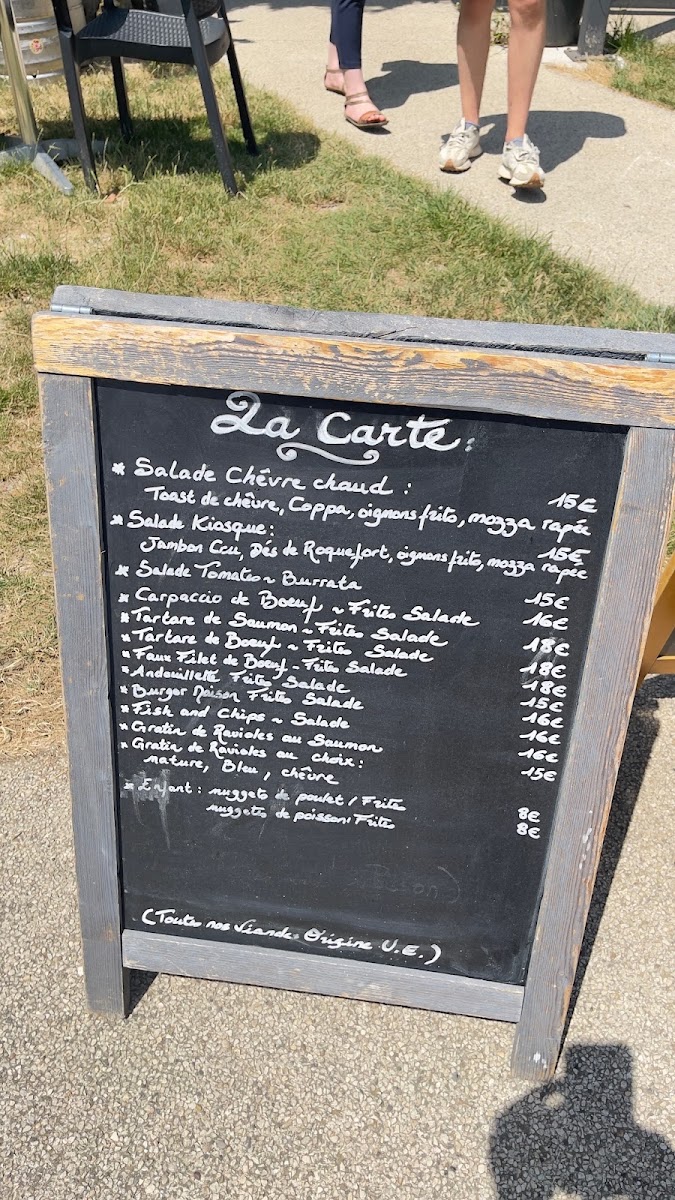 La Carte:
* Salade Chêvre chaud : 15€
Toast de chêvre, Coppa, oignons frits, mozza rapée
* Salade Kiosque: 15€
Jambon Cru, Dés de Roquefort, oignons frits, mozza rapée
* Salade Tomates ~ Burrata 15€
* Carpaccio de Boeuf ~ Frites Salade 16€
* Tartare de Saumon ~ Frites Salade 18€
* Tartare de Boeuf ~ Frites Salade 18€
* Faux Filet de Boeuf - Frites Salade 18€
* Andouillette Frites Salade 15€
* Burger Maison Frites Salade 16€
* Fish and Chips ~ Salade 16€
* Gratin de Ravioles au Saumon 16€
* Gratin de Ravioles au choix: 15€
nature, Bleu, chêvre
* Enfant : nuggets de poulet / Frites 8€
nuggets de poisson / Frites 8€
(Toutes nos Viandes Origine U.E.)